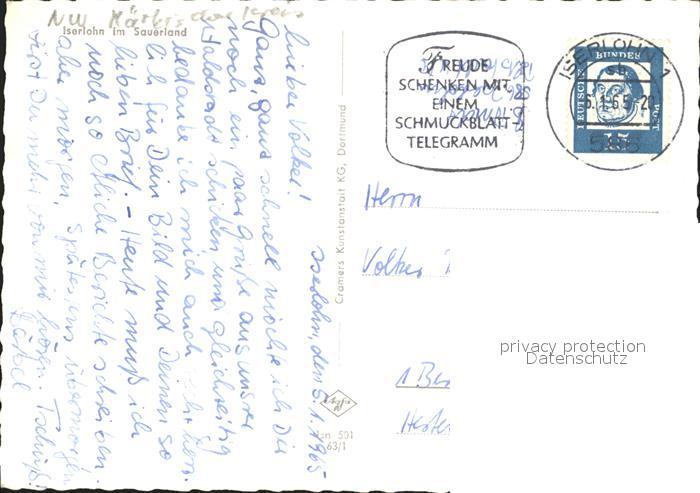 NW Märkischer Kreis
Iserlohn im Sauerland
Iserlohn, den 5.1.1965
Lieber Volker!
Ganz ganz schnell möchte ich Dir
noch ein paar Grüße aus unserer
Waldstadt schicken und gleichzeitig
bedanke ich mich auch
lich für Dein Bild und Deinen so
lieben Brief. – Heute muß ich
noch so etliche Berichte schreiben.
aber morgen, spätestens übermorgen
wirst Du mehr von mir hören. Tschüß!
Cramers Kunstanstalt KG, Dortmund
501
63/1
FREUDE
SCHENKEN MIT
EINEM
SCHMUCKBLATT-
TELEGRAMM
ISERLOHN 1
sb
5.1.65-20
586
DEUTSCHE BUNDESPOST
15
Herrn
Volker
1 Ber
privacy protection
Datenschutz